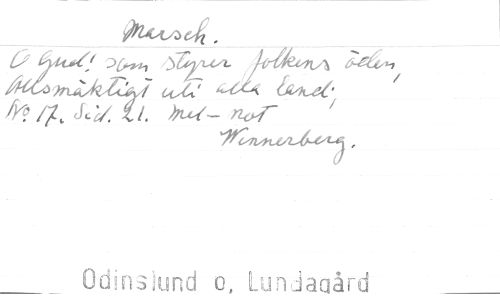 Marsch.
O Gud! som styrer folkens öden,
Allsmäktigt uti alla land;
No 17. Sid. 21. mel-not
Wennerberg.
Odinslund o, Lundagård